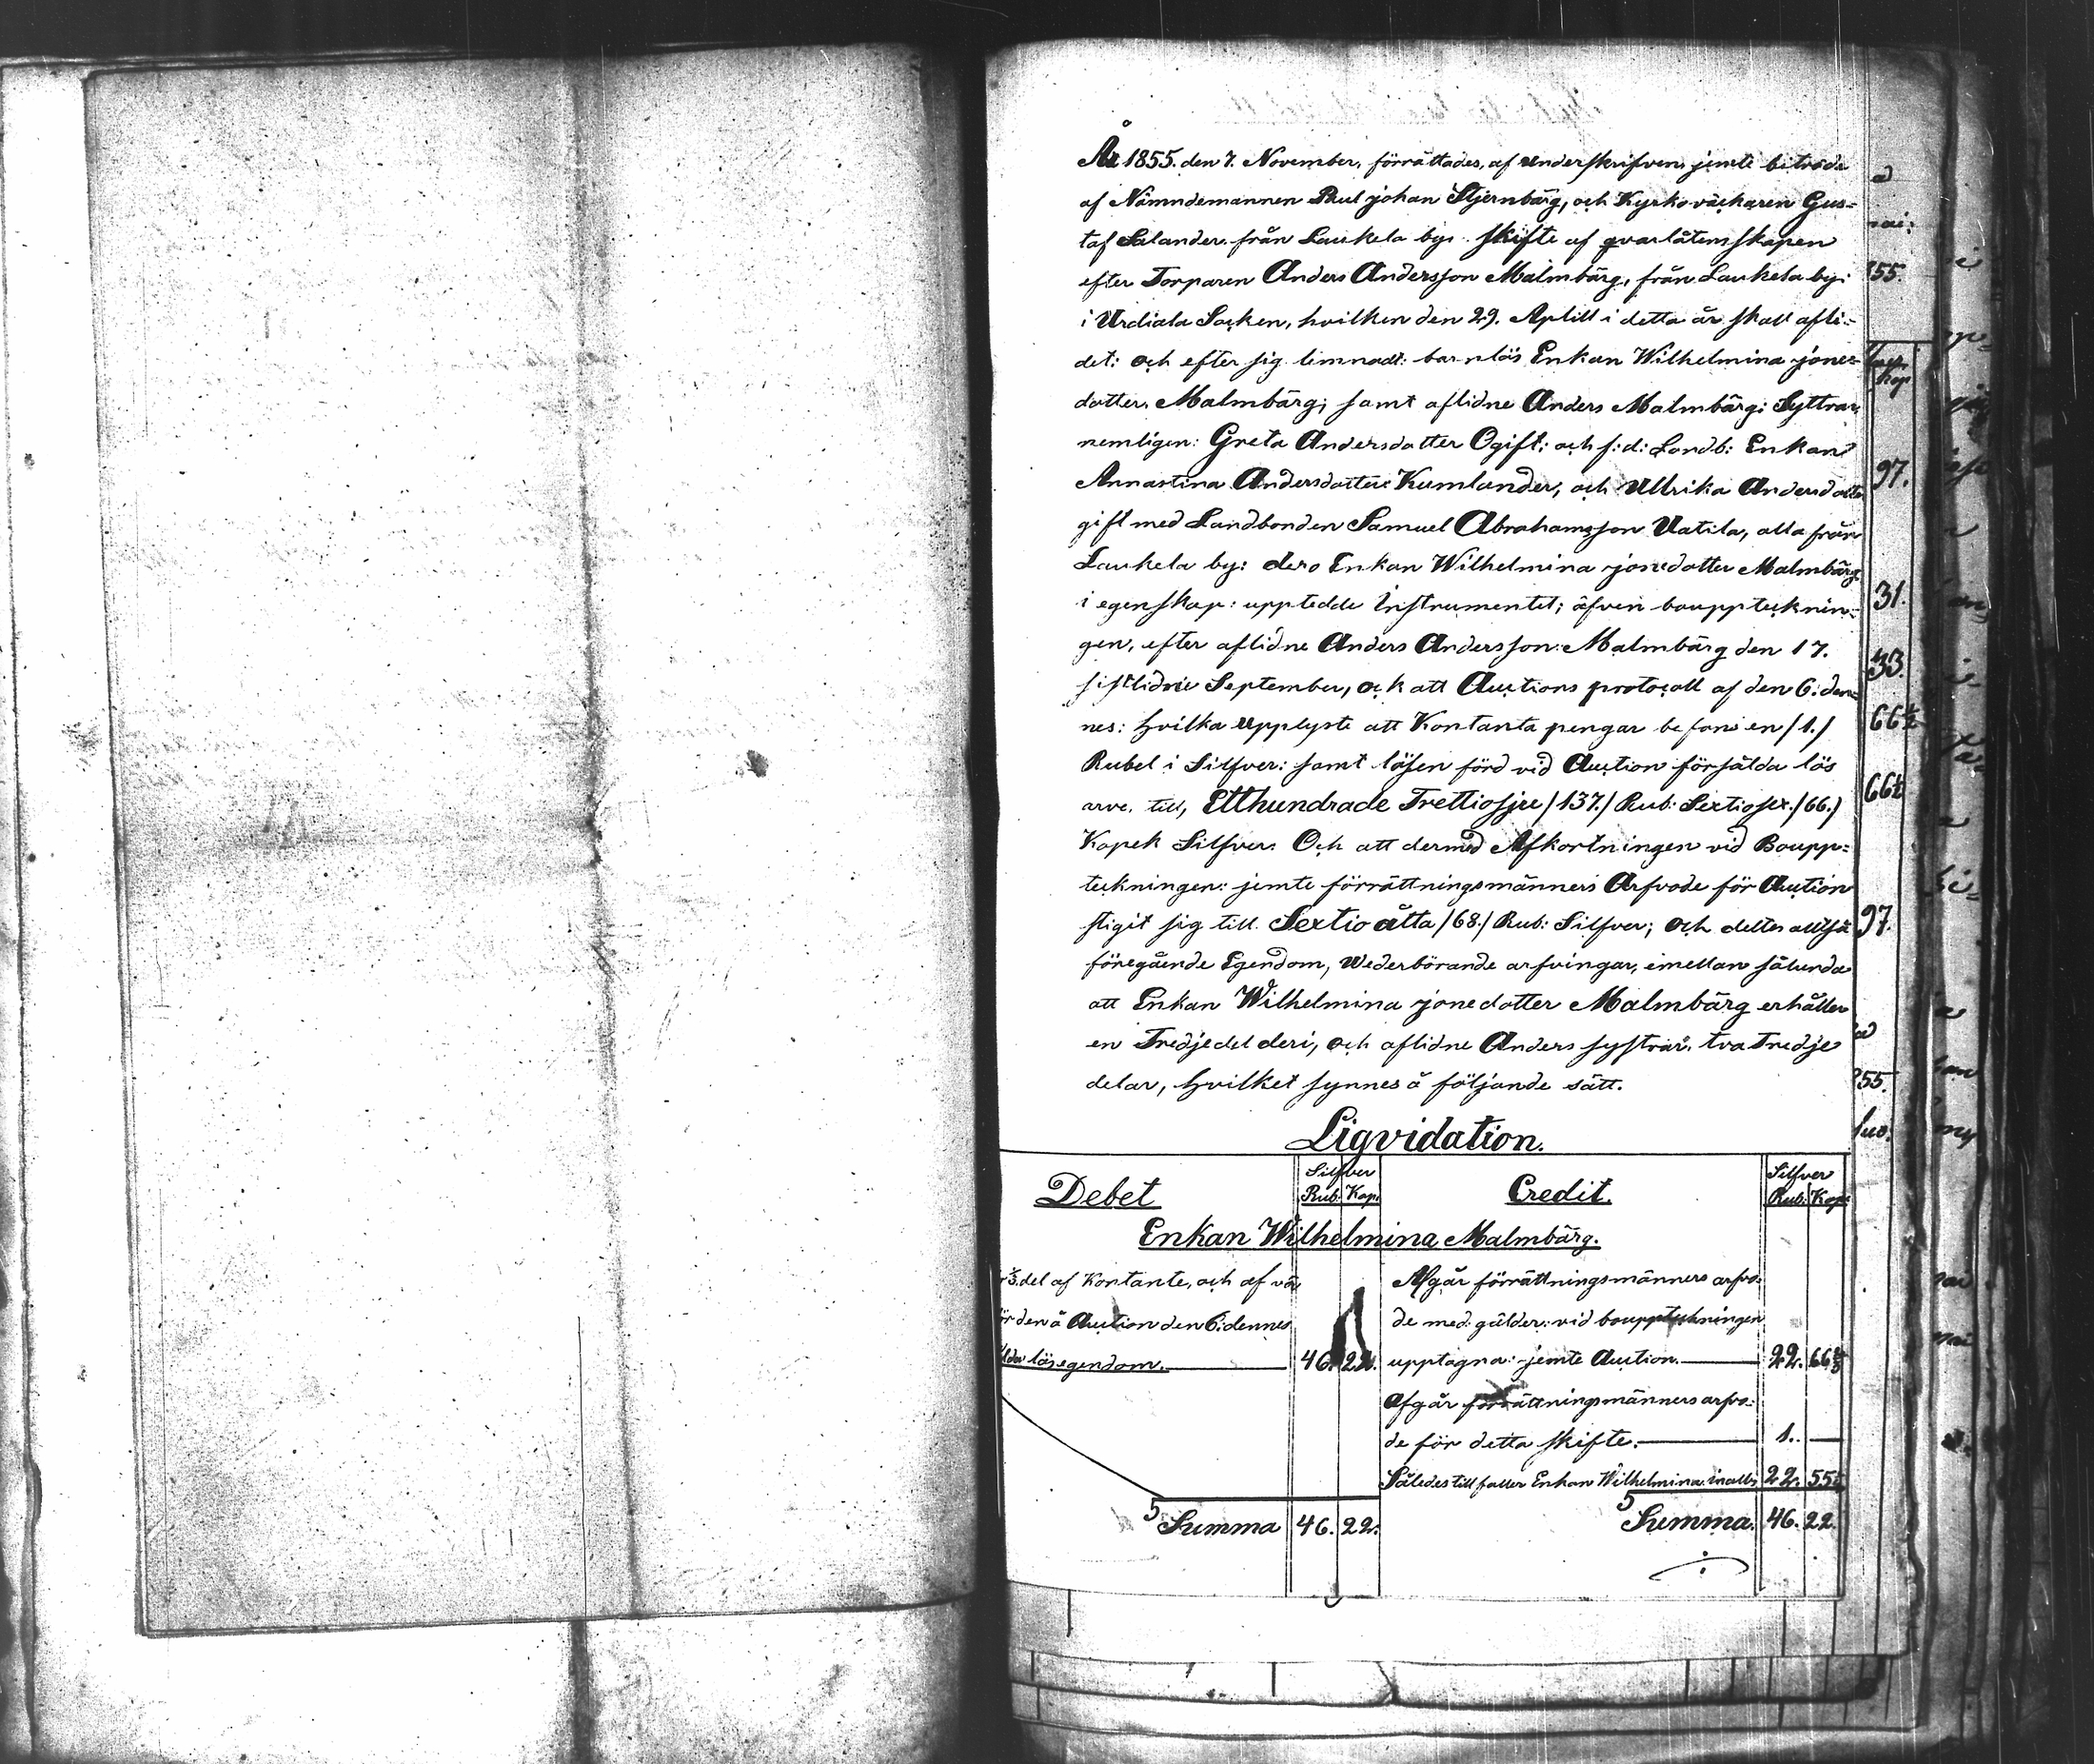 År 1855. den 7. November, förrättades, af underskrifven jemte biträde
af Nämndemannen Paul johan Stjernbärg, och Kyrkoväckaren Gus=
taf Salander från Laukela by: skifte af qvarlåtenskapen
efter Torparen Anders Andersson Malmbärg, från Laukela by:
i Urdiala Socken, hvilken den 29. Aplill i detta år skall afli=
det: och efter sig limnadt: barnlös Enkan Wilhelmina jones=
dotter, Malmbärg; samt aflidne Anders Malmbärg: Syttrar,
nemligen: Greta Andersdotter Ogift; och f:d: Landb: Enkan
Annastina Andersdotter Kumlander, och Ullrika Andersdotter
gift med Landbonden Samuel Abrahamsson Uatila, alla från
Laukela by: dero Enkan Wilhelmina jonedotter Malmbärg
i egenskap: upptedde Instrumentet; äfven bouppteknin=
gen, efter aflidne Anders Andersson Malmbärg den 17.
sistlidne September, och att Auctions protocoll af den 6: den=
nes: hvilka upplyste att Kontanta pengar befans en /1./
Rubel i Silfver: samt lösen förd vid Auction försålda lös
arve. till, Etthundrade Trettiosju /137./ Rub: Sextiosex /66./
Kopek Silfver. Och att dermed Afkortningen vid Boupp=
teckningen: jemte förrättningsmänners Arfvode för Auction
stigit sig till Sextio åtta /68./ Rub: Silfver; och deltes alltså
föregående Egendom, Wederbörande arfvingar, emellan sålunda
att Enkan Wilhelmina jonedotter Malmbärg erhåller
en Tredjedel deri, och aflidne Anders systrar, tva Tredje
delar, hvilket synnes å följande sätt.
Liqvidation.
Debet Silfver Rub: Kop: Credit. Silfver Rub: Kop:
Enkan Wilhelmina Malmbärg.
⅓.del af Kontante, och af
den å Auction den 6: dennes
lösegendom. 46. 22.
Afgår förrättningsmänners arfvo=
de med gälder: vid bouppteckningen
upptagna: jemte Auction. 22. 66⅔
Afgår förrättningsmänners arfvo=
de för detta skifte. 1. —
Således tillfaller Enkan Wilhelmina inalls 22. 55⅓
Summa 46. 22. Summa. 46. 22.
55.
Kop
97.
31.
33.
66½
66½
97.
55.